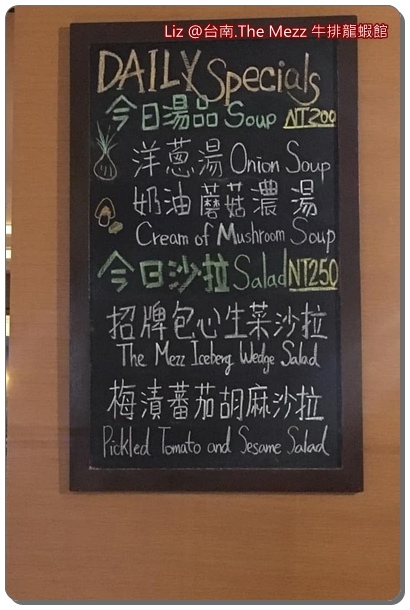 Liz @台南.The Mezz 牛排龍蝦館
DAILY Specials
今日湯品 Soup NT200
洋蔥湯 Onion Soup
奶油蘑菇濃湯
Cream of Mushroom Soup
今日沙拉 Salad NT250
招牌包心生菜沙拉
The Mezz Iceberg Wedge Salad
梅漬蕃茄胡麻沙拉
Pickled Tomato and Sesame Salad